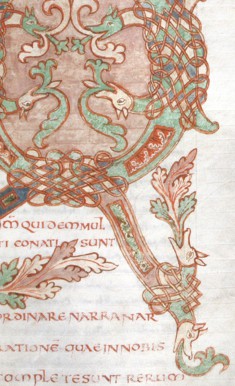 QUIDEM MUL
TI CONATI SUNT
ORDINARE NARRANAR
RATIONĒ QUAE IN NOBIS
COMPLETE SUNT RERUM